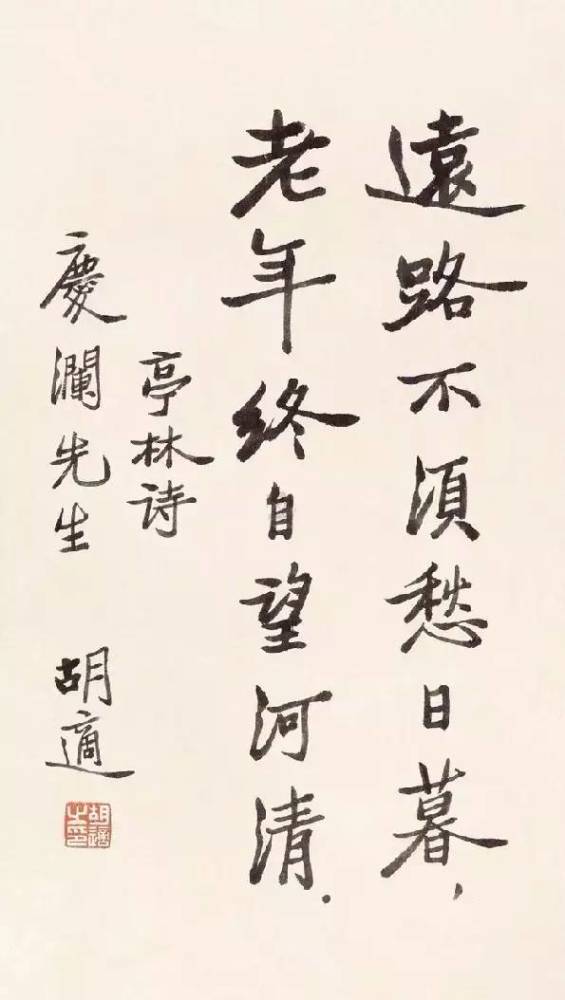 遠路不須愁日暮，
老年終自望河清．
亭林詩
慶瀾先生 胡適
胡適之印